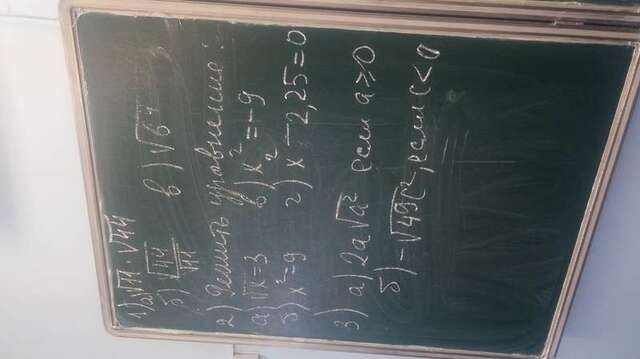 1) а) √11 · √44
б) √44/√11 в) √64
2) Решить уравнение:
а) √x = 3 в) x² = -9
б) x² = 9 г) x² - 2,25 = 0
3) а) 2a√a² если a ≥ 0
б) -√49c², если c < 0